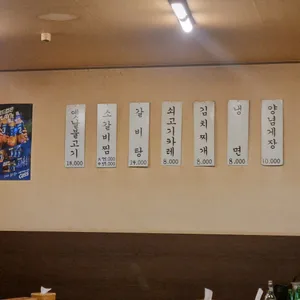 옛날불고기
14,000
소갈비찜
갈비탕
14,000
쇠고기카레
8,000
김치찌개
8,000
냉면
8,000
양념게장
10,000